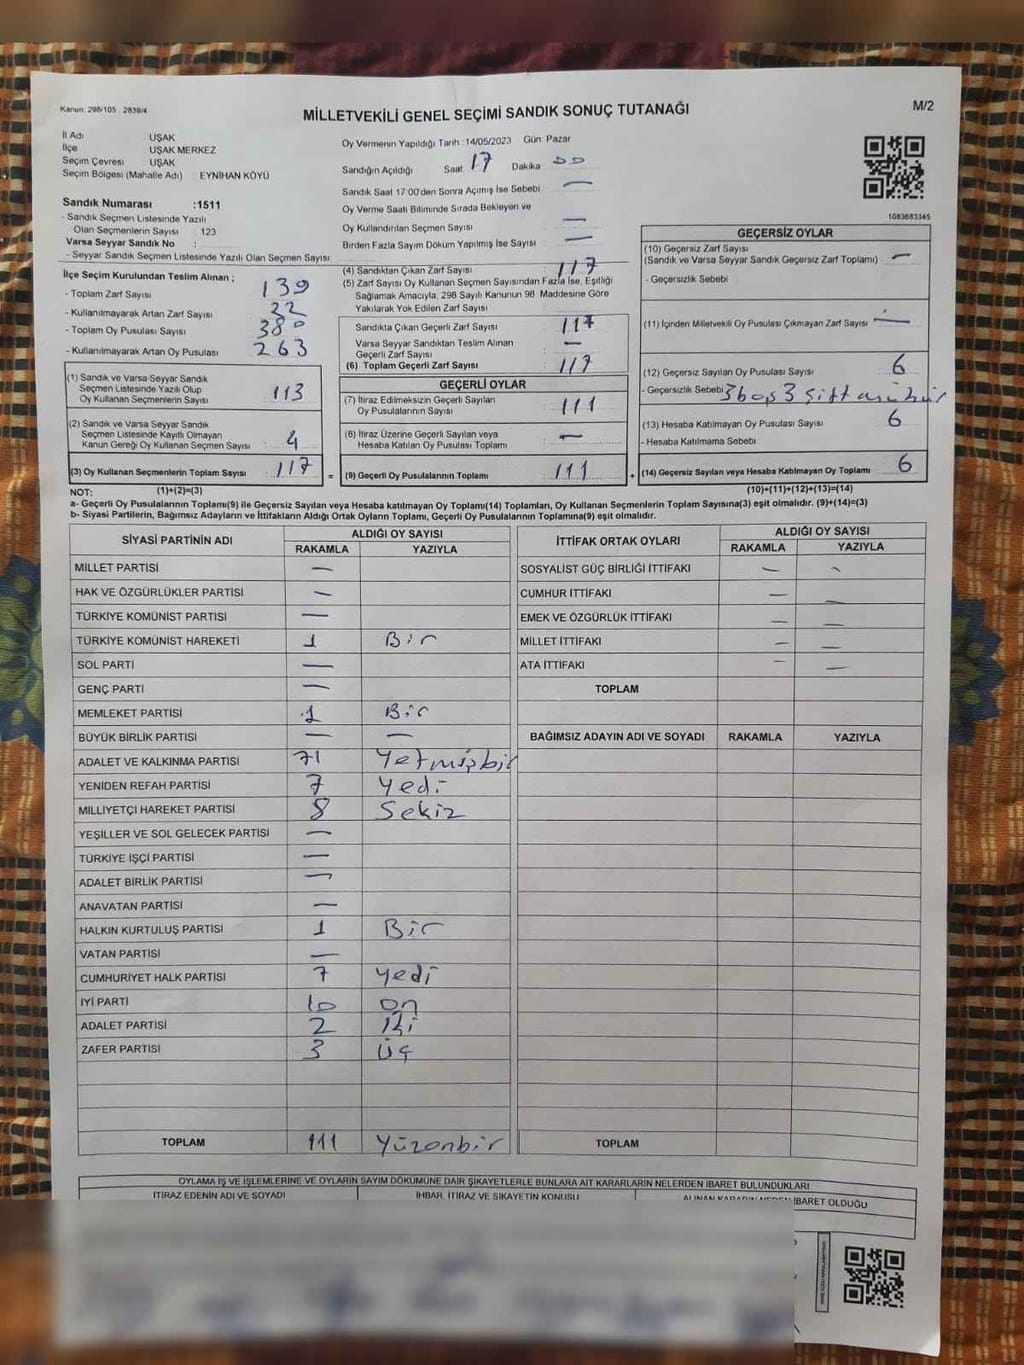 Kanun: 298/105 , 2839/4
MİLLETVEKİLİ GENEL SEÇİMİ SANDIK SONUÇ TUTANAĞI
M/2
İl Adı UŞAK
İlçe UŞAK MERKEZ
Seçim Çevresi : UŞAK
Seçim Bölgesi (Mahalle Adı) : EYNİHAN KÖYÜ
Sandık Numarası :1511
- Sandık Seçmen Listesinde Yazılı
Olan Seçmenlerin Sayısı : 123
Varsa Seyyar Sandık No :
- Seyyar Sandık Seçmen Listesinde Yazılı Olan Seçmen Sayısı
Oy Vermenin Yapıldığı Tarih :14/05/2023 Gün: Pazar
Sandığın Açıldığı Saat 17 Dakika 00
Sandık Saat 17:00'den Sonra Açımış İse Sebebi —
Oy Verme Saati Bitiminde Sırada Bekleyen ve
Oy Kullandırılan Seçmen Sayısı —
Birden Fazla Sayım Döküm Yapılmış İse Sayısı —
1083683345
İlçe Seçim Kurulundan Teslim Alınan ;
- Toplam Zarf Sayısı 139
- Kullanılmayarak Artan Zarf Sayısı 22
- Toplam Oy Pusulası Sayısı 380
- Kullanılmayarak Artan Oy Pusulası 263
(1) Sandık ve Varsa Seyyar Sandık
Seçmen Listesinde Yazılı Olup
Oy Kullanan Seçmenlerin Sayısı : 113
(2) Sandık ve Varsa Seyyar Sandık
Seçmen Listesinde Kayıtlı Olmayan
Kanun Gereği Oy Kullanan Seçmen Sayısı : 4
(3) Oy Kullanan Seçmenlerin Toplam Sayısı : 117
(4) Sandıktan Çıkan Zarf Sayısı 117
(5) Zarf Sayısı Oy Kullanan Seçmen Sayısından Fazla İse, Eşitliği
Sağlamak Amacıyla, 298 Sayılı Kanunun 98. Maddesine Göre
Yakılarak Yok Edilen Zarf Sayısı
Sandıkta Çıkan Geçerli Zarf Sayısı : 117
Varsa Seyyar Sandıktan Teslim Alınan
Geçerli Zarf Sayısı —
(6) Toplam Geçerli Zarf Sayısı : 117
GEÇERLİ OYLAR
(7) İtiraz Edilmeksizin Geçerli Sayılan
Oy Pusulalarının Sayısı : 111
(8) İtiraz Üzerine Geçerli Sayılan veya
Hesaba Katılan Oy Pusulası Toplamı : —
= (9) Geçerli Oy Pusulalarının Toplamı : 111
GEÇERSİZ OYLAR
(10) Geçersiz Zarf Sayısı
(Sandık ve Varsa Seyyar Sandık Geçersiz Zarf Toplamı) : —
- Geçersizlik Sebebi
(11) İçinden Milletvekili Oy Pusulası Çıkmayan Zarf Sayısı : —
(12) Geçersiz Sayılan Oy Pusulası Sayısı : 6
- Geçersizlik Sebebi 3 boş 3 çift
(13) Hesaba Katılmayan Oy Pusulası Sayısı : 6
- Hesaba Katılmama Sebebi
+ (14) Geçersiz Sayılan veya Hesaba Katılmayan Oy Toplamı : 6
NOT: (1)+(2)=(3)
(10)+(11)+(12)+(13)=(14)
a- Geçerli Oy Pusulalarının Toplamı(9) ile Geçersiz Sayılan veya Hesaba katılmayan Oy Toplamı(14) Toplamları, Oy Kullanan Seçmenlerin Toplam Sayısına(3) eşit olmalıdır. (9)+(14)=(3)
b- Siyasi Partilerin, Bağımsız Adayların ve İttifakların Aldığı Ortak Oyların Toplamı, Geçerli Oy Pusulalarının Toplamına(9) eşit olmalıdır.
SİYASİ PARTİNİN ADI ALDIĞI OY SAYISI
RAKAMLA YAZIYLA
MİLLET PARTİSİ —
HAK VE ÖZGÜRLÜKLER PARTİSİ —
TÜRKİYE KOMÜNİST PARTİSİ —
TÜRKİYE KOMÜNİST HAREKETİ 1 Bir
SOL PARTİ —
GENÇ PARTİ —
MEMLEKET PARTİSİ 1 Bir
BÜYÜK BİRLİK PARTİSİ — —
ADALET VE KALKINMA PARTİSİ 71 Yetmişbir
YENİDEN REFAH PARTİSİ 7 Yedi
MİLLİYETÇİ HAREKET PARTİSİ 8 Sekiz
YEŞİLLER VE SOL GELECEK PARTİSİ —
TÜRKİYE İŞÇİ PARTİSİ —
ADALET BİRLİK PARTİSİ —
ANAVATAN PARTİSİ —
HALKIN KURTULUŞ PARTİSİ 1 Bir
VATAN PARTİSİ —
CUMHURİYET HALK PARTİSİ 7 Yedi
İYİ PARTİ 10 On
ADALET PARTİSİ 2 İki
ZAFER PARTİSİ 3 Üç
TOPLAM 111 Yüzonbir
İTTİFAK ORTAK OYLARI ALDIĞI OY SAYISI
RAKAMLA YAZIYLA
SOSYALİST GÜÇ BİRLİĞİ İTTİFAKI — —
CUMHUR İTTİFAKI — —
EMEK VE ÖZGÜRLÜK İTTİFAKI — —
MİLLET İTTİFAKI — —
ATA İTTİFAKI — —
TOPLAM
BAĞIMSIZ ADAYIN ADI VE SOYADI RAKAMLA YAZIYLA
TOPLAM
OYLAMA İŞ VE İŞLEMLERİNE VE OYLARIN SAYIM DÖKÜMÜNE DAİR ŞİKAYETLERLE BUNLARA AİT KARARLARIN NELERDEN İBARET BULUNDUKLARI
İTİRAZ EDENİN ADI VE SOYADI İHBAR, İTİRAZ VE ŞİKAYETİN KONUSU ALINAN KARARIN NEDEN İBARET OLDUĞU